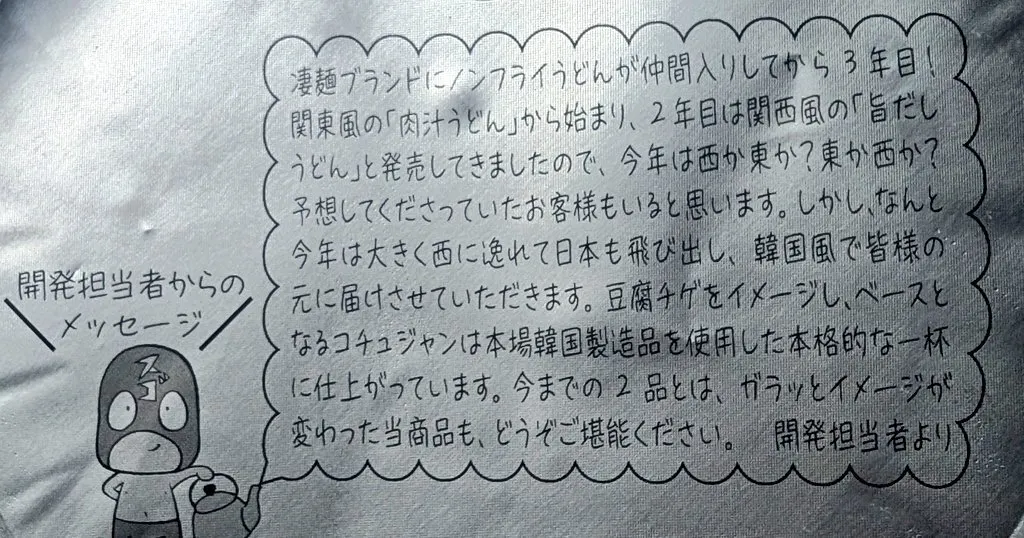 凄麺ブランドにノンフライうどんが仲間入りしてから3年目!
関東風の「肉汁うどん」から始まり、2年目は関西風の「旨だし
うどん」と発売してきましたので、今年は西か東か?東か西か?
予想してくださっていたお客様もいると思います。しかし、なんと
今年は大きく西に逸れて日本も飛び出し、韓国風で皆様の
元に届けさせていただきます。豆腐チゲをイメージし、ベースと
なるコチュジャンは本場韓国製造品を使用した本格的な一杯
に仕上がっています。今までの2品とは、ガラッとイメージが
変わった当商品も、どうぞご堪能ください。 開発担当者より
開発担当者からの
メッセージ
スゴ